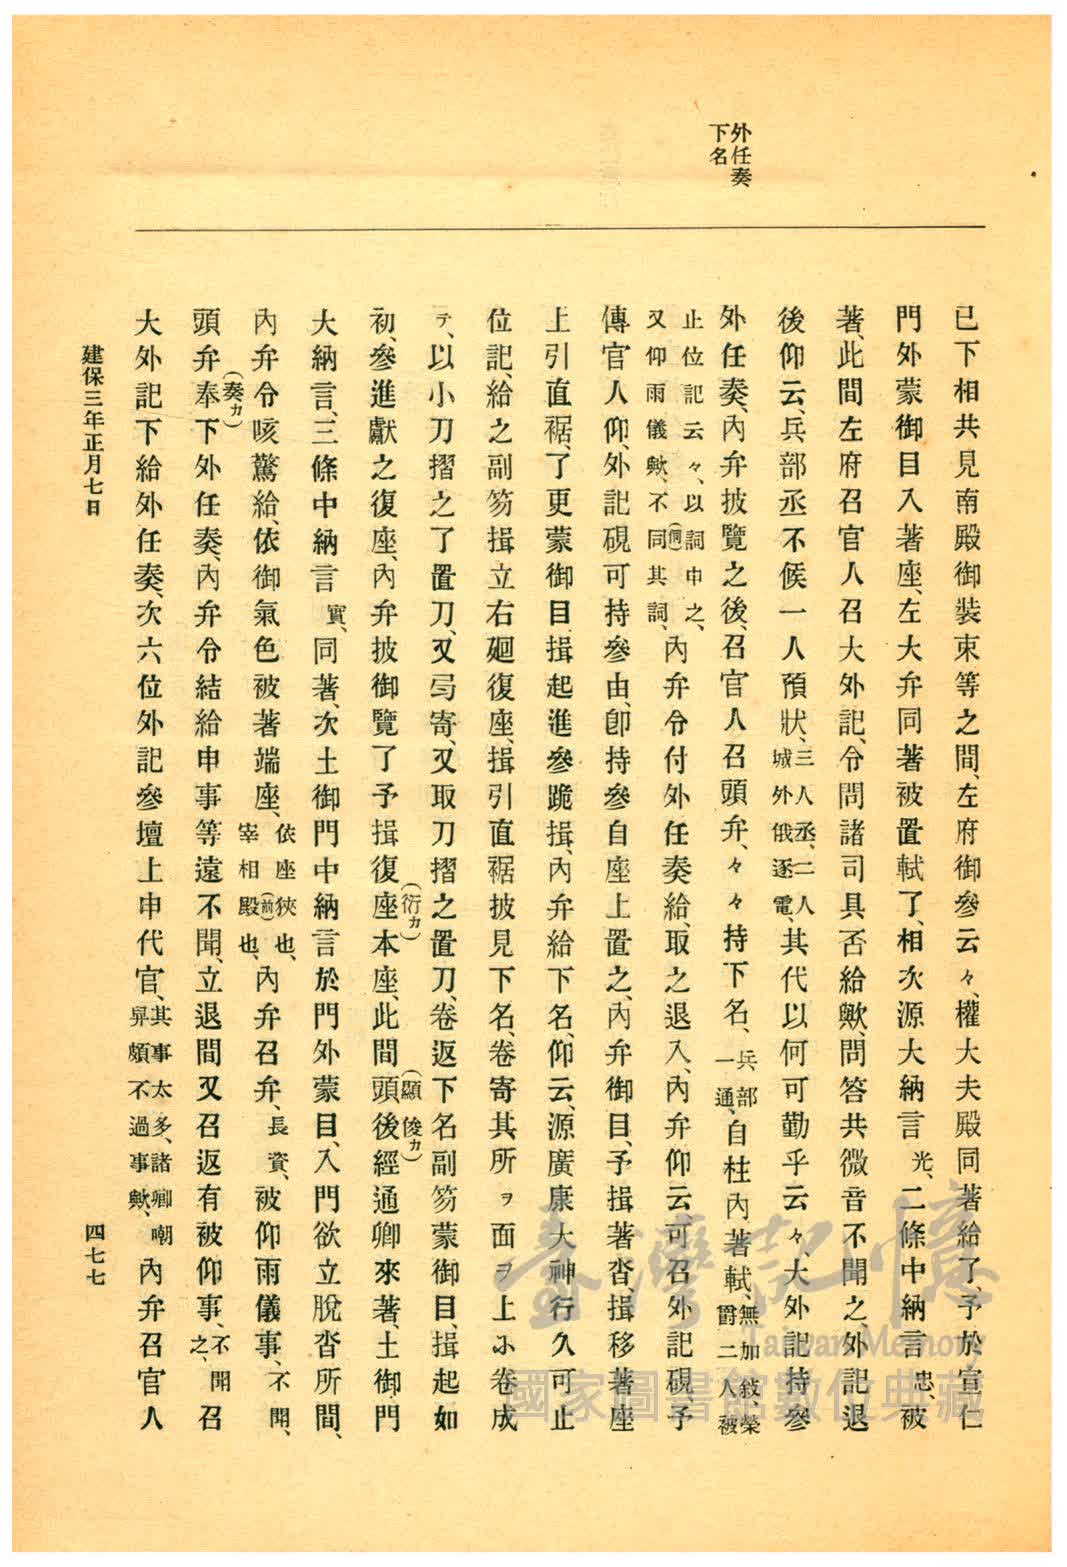 外任奏
下名
已下相共見南殿御裝束等之間、左府御參云々、權大夫殿同著給了、予於宣仁
門外蒙御目入著座、左大弁同著被置軾了、相次源大納言光、二條中納言忠、被
著、此間左府召官人召大外記、令問諸司具否給歟、問答共微音不聞之、外記退
後仰云、兵部丞不候一人預狀、三人丞、二人城外俄逐電、其代以何可勤乎云々、大外記持參
外任奏、內弁披覽之後、召官人召頭弁、々々持下名、兵部一通、自柱內著軾、無加敍榮爵二人被
止位記云々、以詞申之、又仰雨儀歟、不同其詞、(聞)內弁令付外任奏給、取之退入、內弁仰云、可召外記硯、予
傳官人仰、外記硯可持參由、卽持參自座上置之、內弁御目、予揖著沓、揖移著座
上引直裾、了更蒙御目、揖起進參跪揖、內弁給下名、仰云、源廣康大神行久可止
位記、給之副笏揖立右廻復座、揖引直裾披見下名、卷寄其所ヲ面ヲ上ニ卷成
テ、以小刀摺之了置刀、又弓寄、又取刀摺之置刀、卷返下名副笏蒙御目、揖起如
初、參進獻之復座、內弁披御覽了予揖復座本座、(衍カ)此間頭後經通卿來著、(顯俊カ)土御門
大納言、三條中納言實、同著、次土御門中納言於門外蒙目、入門欲立脫沓所間、
內弁令咳驚給、依御氣色被著端座、依座狹也、宰相殿(前)也、內弁召弁、長資、被仰雨儀事、不聞、
頭弁奉(奏カ)下外任奏、內弁令結給申事等遠不聞、立退間又召返有被仰事、不聞之、召
大外記下給外任奏、次六位外記參壇上申代官、其事太多、諸卿嘲哢頗不過事歟、內弁召官人
建保三年正月七日
四七七
臺灣記憶
Taiwan Memory
國家圖書館數位典藏